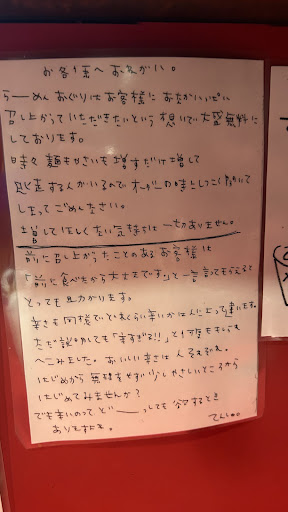 お客様へお願い。
らーめんおぐりはお客様におなかいっぱい
召し上がっていただきたいという想いで大盛無料に
しております。
時々麺もやさいも増すだけ増して
残する人がいるのでオーダーの時しつこく聞いて
しまってごめんなさい。
増してほしくない気持ちは一切ありません。
前に召し上がったことのあるお客様は
「前に食べたから大丈夫です」と一言言ってもらえると
とっても助かります。
辛さも同様でどれくらい辛いかは人によって違います。
ただ説明しても「辛すぎる!!」と
へこみました。おいしい辛さは人それぞれ。
はじめから無理をせず少しやさしいところから
はじめてみませんか?
でも辛いのってど──しても欲するとき
ありますよね。
てんしゅ